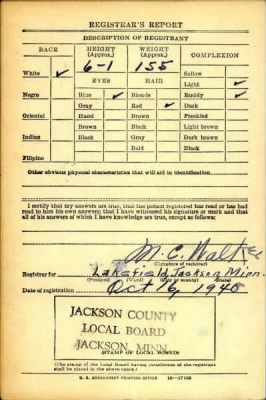 REGISTRAR'S REPORT
DESCRIPTION OF REGISTRANT
RACE HEIGHT (Approx.) WEIGHT (Approx.) COMPLEXION
6-1 155
White ✓ Sallow
EYES HAIR Light ✓
Negro Blue ✓ Blonde Ruddy ✓
Gray Red ✓ Dark
Oriental Hazel Brown Freckled
Brown Black Light brown
Indian Black Gray Dark brown
Bald Black
Filipino
Other obvious physical characteristics that will aid in identification
I certify that my answers are true; that the person registered has read or has had
read to him his own answers; that I have witnessed his signature or mark and that
all of his answers of which I have knowledge are true, except as follows:
M. C. Walker
(Signature of registrar)
Registrar for Lakefield, Jackson, Minn.
(Precinct) (Ward) (City or county) (State)
Date of registration Oct 16, 1940
JACKSON COUNTY
LOCAL BOARD
JACKSON, MINN.
(STAMP OF LOCAL BOARD)
(The stamp of the Local Board having jurisdiction of the registrant
shall be placed in the above space.)
U. S. GOVERNMENT PRINTING OFFICE 16—17105